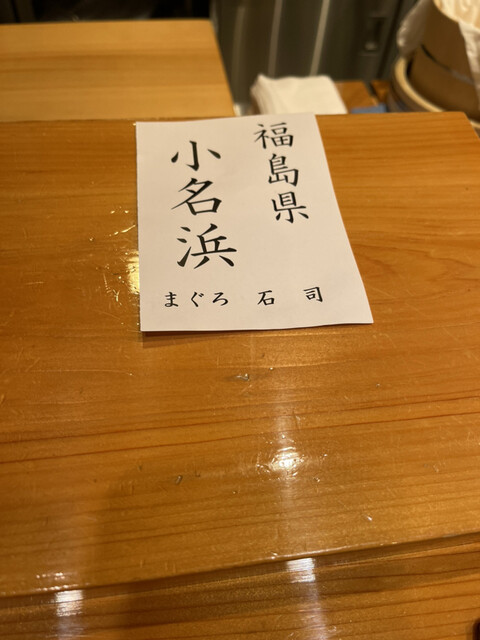 福島県
小名浜
まぐろ 石司